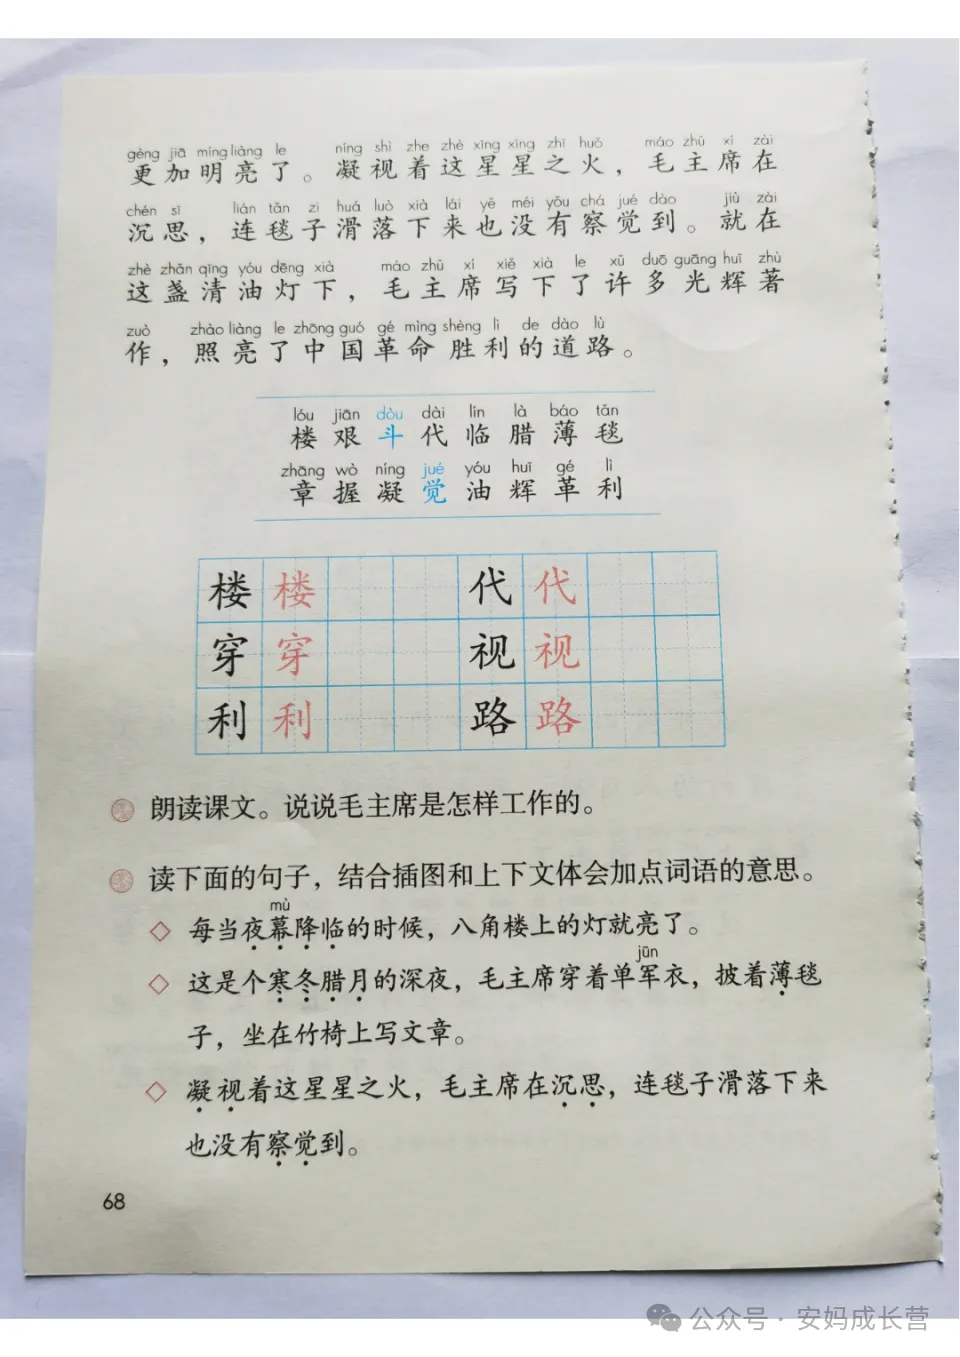 gèng jiā míng liàng le níng shì zhe zhè xīng xīng zhī huǒ máo zhǔ xí zài
更加明亮了。凝视着这星星之火，毛主席在
chén sī lián tǎn zi huá luò xià lái yě méi yǒu chá jué dào jiù zài
沉思，连毯子滑落下来也没有察觉到。就在
zhè zhǎn qīng yóu dēng xià máo zhǔ xí xiě xià le xǔ duō guāng huī zhù
这盏清油灯下，毛主席写下了许多光辉著
zuò zhào liàng le zhōng guó gé mìng shèng lì de dào lù
作，照亮了中国革命胜利的道路。
lóu jiān dòu dài lín là báo tǎn
楼 艰 斗 代 临 腊 薄 毯
zhāng wò níng jué yóu huī gé lì
章 握 凝 觉 油 辉 革 利
楼 楼 代 代
穿 穿 视 视
利 利 路 路
朗读课文。说说毛主席是怎样工作的。
读下面的句子，结合插图和上下文体会加点词语的意思。
mù
◇ 每当夜幕降临的时候，八角楼上的灯就亮了。
jūn
◇ 这是个寒冬腊月的深夜，毛主席穿着单军衣，披着薄毯
子，坐在竹椅上写文章。
◇ 凝视着这星星之火，毛主席在沉思，连毯子滑落下来
也没有察觉到。
68
公众号 · 安妈成长营